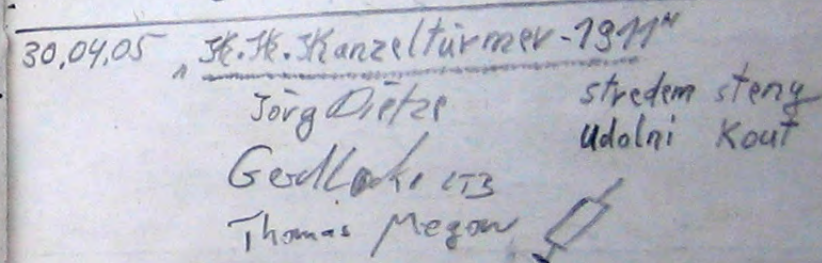 30.04.05 „K.K. Kanzeltürmer-1911"
Jörg Dietze
Gerd LTB
Thomas Megow
stredem steny
Udolni Kout